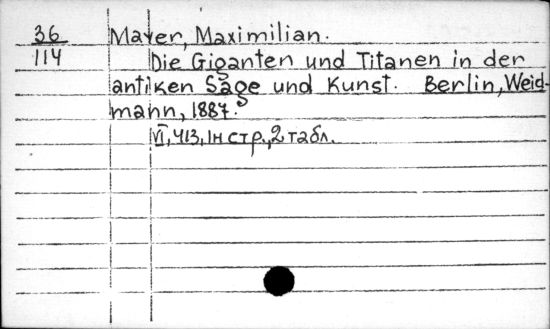 36 Mayer, Maximilian.
114 Die Giganten und Titanen in der
antiken Sage und Kunst. Berlin, Weid-
mann, 1887.
VI, 413, 1н стр., 2 табл.